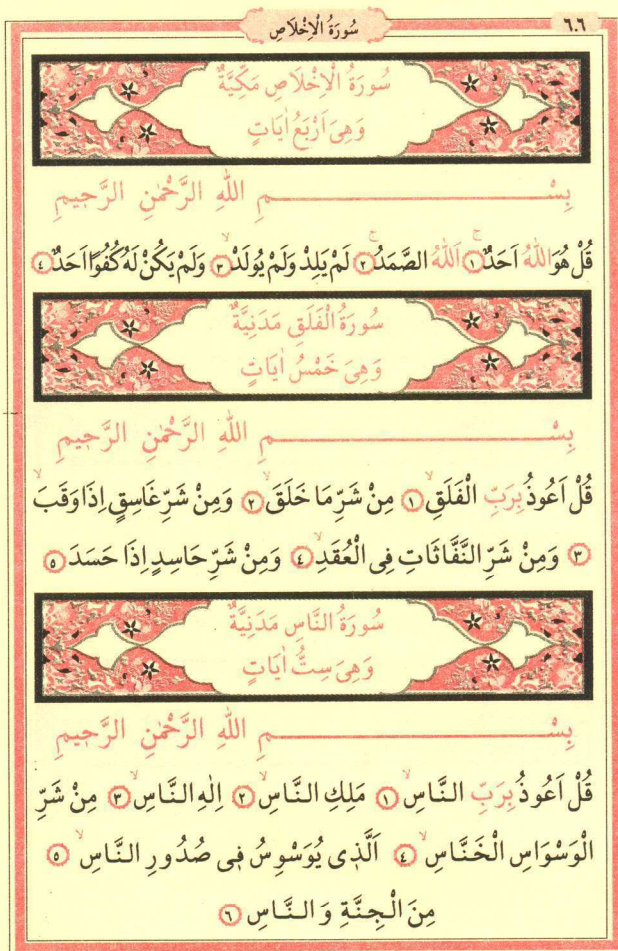 ٦٠٦
سُورَةُ الْاِخْلَاصِ
سُورَةُ الْاِخْلَاصِ مَكِّيَّةٌ
وَهِىَ اَرْبَعُ اٰيَاتٍ
بِسْمِ اللّٰهِ الرَّحْمٰنِ الرَّحِيمِ
قُلْ هُوَ اللّٰهُ اَحَدٌۚ ﴿١﴾ اَللّٰهُ الصَّمَدُۚ ﴿٢﴾ لَمْ يَلِدْ وَلَمْ يُولَدْۙ ﴿٣﴾ وَلَمْ يَكُنْ لَهُ كُفُوًا اَحَدٌ ﴿٤﴾
سُورَةُ الْفَلَقِ مَدَنِيَّةٌ
وَهِىَ خَمْسُ اٰيَاتٍ
بِسْمِ اللّٰهِ الرَّحْمٰنِ الرَّحِيمِ
قُلْ اَعُوذُ بِرَبِّ الْفَلَقِۙ ﴿١﴾ مِنْ شَرِّ مَا خَلَقَۙ ﴿٢﴾ وَمِنْ شَرِّ غَاسِقٍ اِذَا وَقَبَۙ
﴿٣﴾ وَمِنْ شَرِّ النَّفَّاثَاتِ فِى الْعُقَدِۙ ﴿٤﴾ وَمِنْ شَرِّ حَاسِدٍ اِذَا حَسَدَ ﴿٥﴾
سُورَةُ النَّاسِ مَدَنِيَّةٌ
وَهِىَ سِتُّ اٰيَاتٍ
بِسْمِ اللّٰهِ الرَّحْمٰنِ الرَّحِيمِ
قُلْ اَعُوذُ بِرَبِّ النَّاسِۙ ﴿١﴾ مَلِكِ النَّاسِۙ ﴿٢﴾ اِلٰهِ النَّاسِۙ ﴿٣﴾ مِنْ شَرِّ
الْوَسْوَاسِ الْخَنَّاسِۙ ﴿٤﴾ اَلَّذِى يُوَسْوِسُ فِى صُدُورِ النَّاسِۙ ﴿٥﴾
مِنَ الْجِنَّةِ وَ النَّاسِ ﴿٦﴾